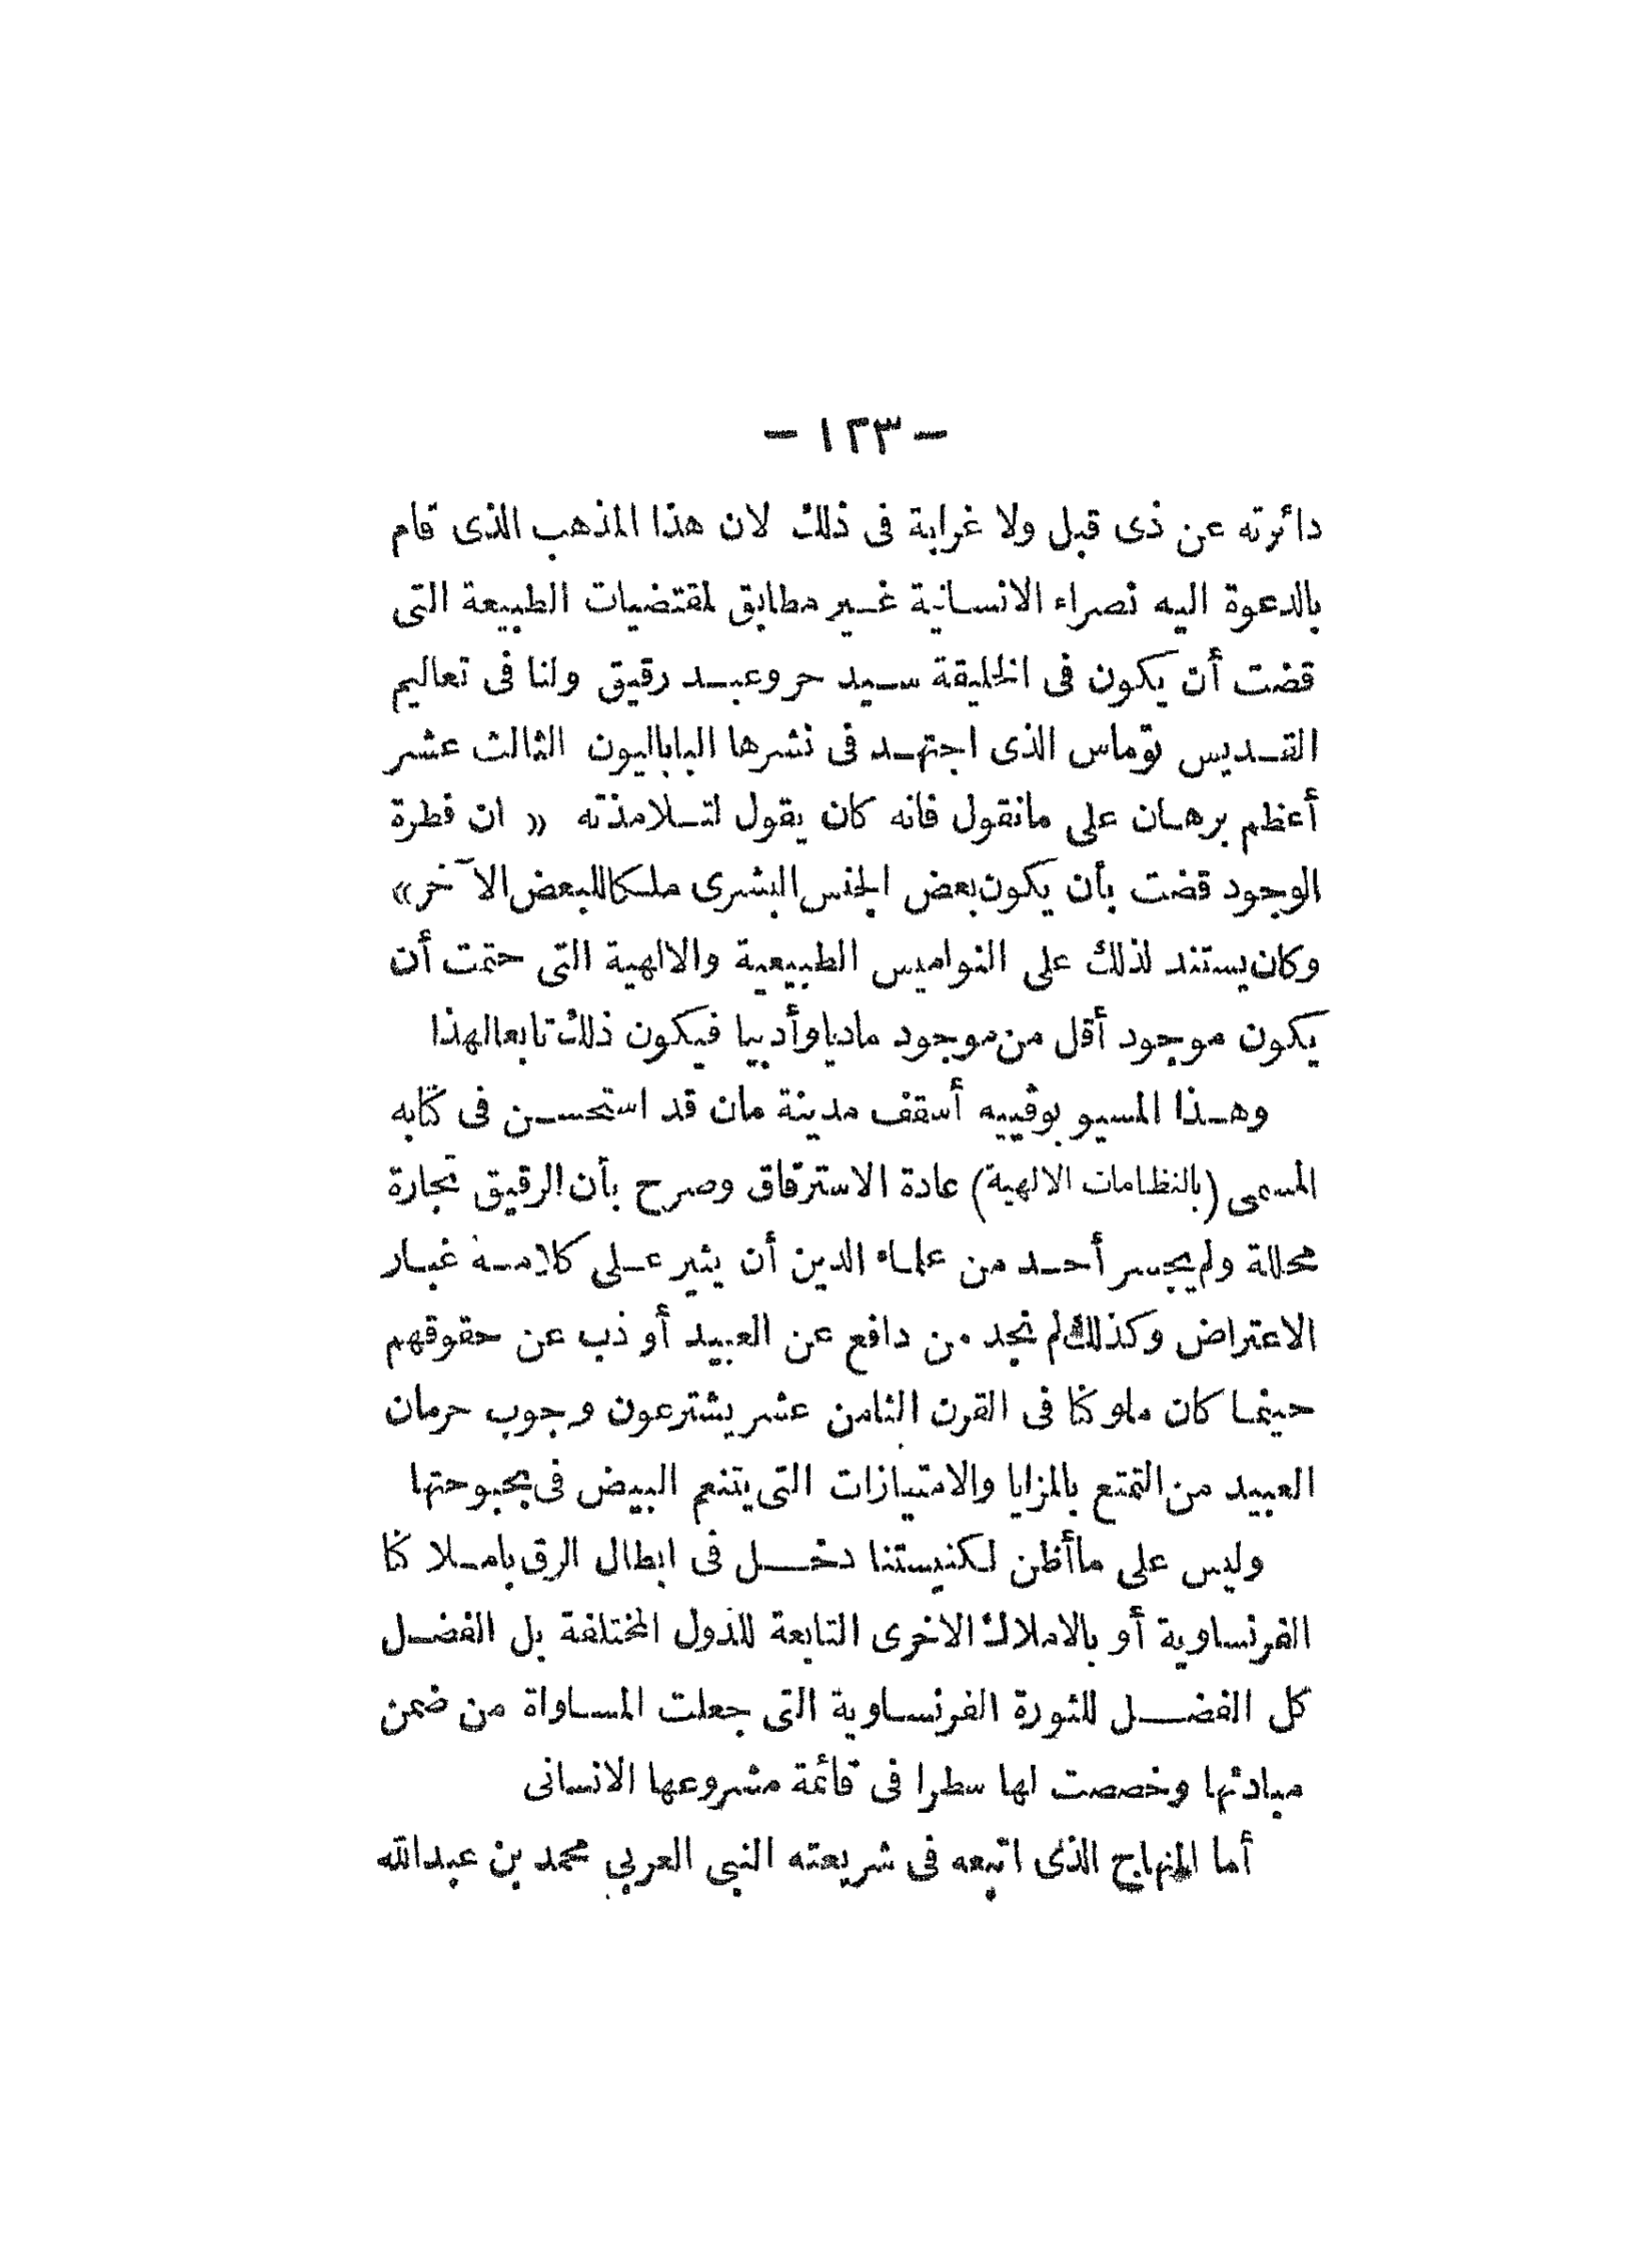 - ١٢٣ -
دائرته عن ذى قبل ولا غرابة فى ذلك لان هذا المذهب الذى قام
بالدعوة اليه نصراء الانسانية غير مطابق لمقتضيات الطبيعة التى
قضت أن يكون فى الخليقة سيد حر وعبد رقيق ولنا فى تعاليم
القديس توماس الذى اجتهد فى نشرها الباباليون الثالث عشر
أعظم برهان على مانقول فانه كان يقول لتلامذته « ان فطرة
الوجود قضت بأن يكون بعض الجنس البشرى ملكا للبعض الآخر »
وكان يستند لذلك على النواميس الطبيعية والالهية التى حتمت أن
يكون موجود أقل من موجود ماديا وأدبيا فيكون ذلك تابعا لهذا
وهذا المسيو بوڤييه أسقف مدينة مان قد استحسن فى كتابه
المسمى (بالنظامات الالهية) عادة الاسترقاق وصرح بأن الرقيق تجارة
محللة ولم يجسر أحد من علماء الدين أن يثير على كلامه غبار
الاعتراض وكذلك لم نجد من دافع عن العبيد أو ذب عن حقوقهم
حينما كان ملوكنا فى القرن الثامن عشر يشترعون وجوب حرمان
العبيد من التمتع بالمزايا والامتيازات التى يتنعم البيض فى بحبوحتها
وليس على ماأظن لكنيستنا دخل فى ابطال الرق بامـلاكنا
الفرنساوية أو بالاملاك الاخرى التابعة للدول المختلفة بل الفضل
كل الفضل للثورة الفرنساوية التى جعلت المساواة من ضمن
مبادئها وخصصت لها سطرا فى قائمة مشروعها الانسانى
أما المنهاج الذى اتبعه فى شريعته النبى العربي محمد بن عبدالله